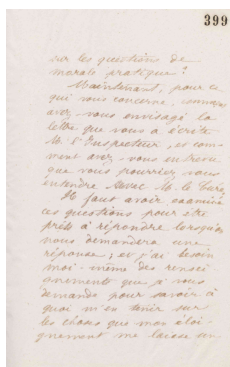 399
sur les questions de
morale pratique?
Maintenant, pour ce
qui vous concerne,
avez-vous envisagé la
lettre que vous a écrite
M. l'Inspecteur, et com-
ment avez-vous entrevu
que vous pourriez vous
entendre avec M. le Curé,
Il faut avoir examiné
ces questions pour être
prêts à répondre lorsqu'on
nous demandera une
réponse; et j'ai besoin
moi-même des rensei-
gnements que je vous
demande pour savoir à
quoi m'en tenir sur
les choses que mon éloi-
gnement me laisse